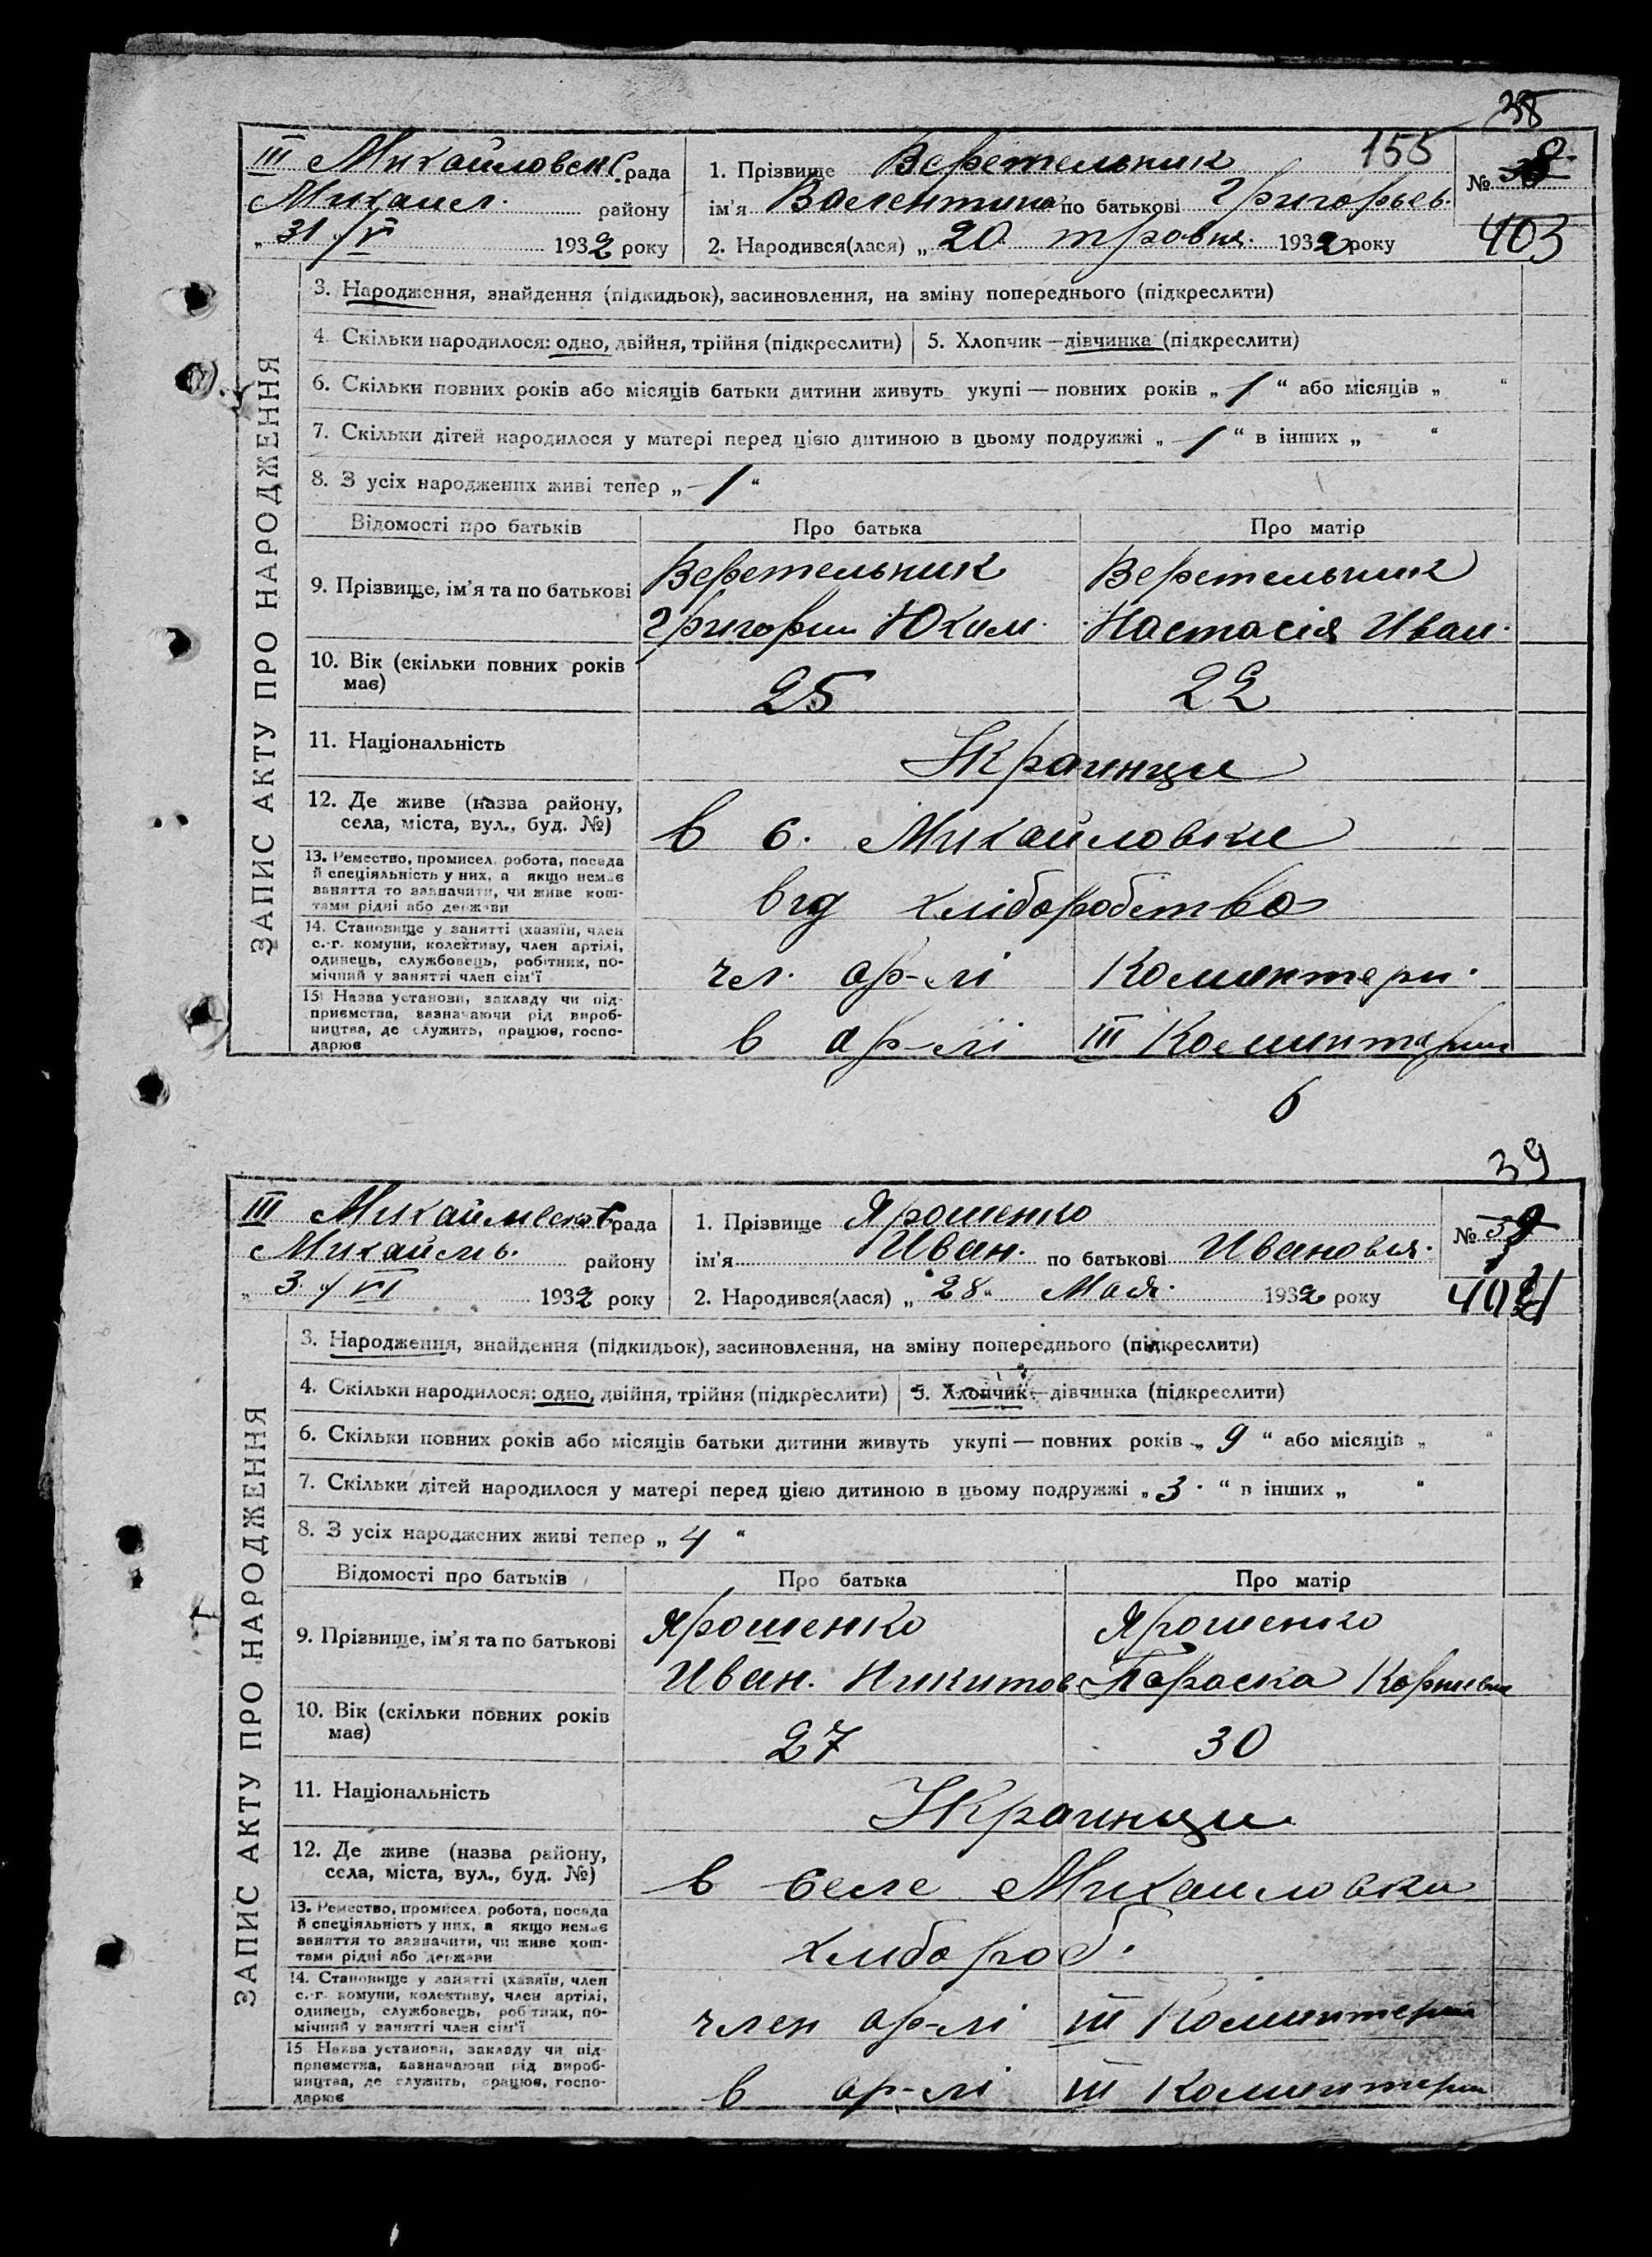 38
155
III Михайловск С.рада
Михаил. району
„ 31 „/V 1932 року
1. Прізвище Веретельник
ім'я Валентина по батькові Григорьев.
2. Народився(лася) „ 20 травня. 1932 року
№
403
ЗАПИС АКТУ ПРО НАРОДЖЕННЯ
3. Народження, знайдення (підкидьок), засиновлення, на зміну попереднього (підкреслити)
4. Скільки народилося: одно, двійня, трійня (підкреслити) 5. Хлопчик—дівчинка (підкреслити)
6. Скільки повних років або місяців батьки дитини живуть укупі — повних років „ 1 “ або місяців „ “
7. Скільки дітей народилося у матері перед цією дитиною в цьому подружжі „ 1 “ в інших „ “
8. З усіх народжених живі тепер „ 1 “
Відомості про батьків Про батька Про матір
9. Прізвище, ім'я та по батькові
Веретельник Веретельник
Григорий Юхим. Настасія Иван.
10. Вік (скільки повних років
має)
25 22
11. Національність
Украинци
12. Де живе (назва району,
села, міста, вул., буд. №)
в с. Михайловки
13. Ремество, промисел, робота, посада
й спеціяльність у них, а якщо немає
заняття то зазначити, чи живе кош-
тами рідні або держави
від хліборобства
14. Становище у занятті (хазяїн, член
с.-г. комуни, колективу, член артілі,
одинець, службовець, робітник, по-
мічний у занятті член сім'ї
чл. ар-лі Коминтерн.
15. Назва установи, закладу чи під-
приємства, зазначаючи рід вироб-
ництва, де служить, працює, госпо-
дарює
в ар-лі III Коминтерн
6
39
III Михайловск С рада
Михайль. району
„ 3 „/VI 1932 року
1. Прізвище Ярошенко
ім'я Иван. по батькові Ивановия.
2. Народився(лася) „ 28 “ Мая. 1932 року
№ 39
ЗАПИС АКТУ ПРО НАРОДЖЕННЯ
3. Народження, знайдення (підкидьок), засиновлення, на зміну попереднього (підкреслити)
4. Скільки народилося: одно, двійня, трійня (підкреслити) 5. Хлопчик—дівчинка (підкреслити)
6. Скільки повних років або місяців батьки дитини живуть укупі — повних років „ 9 “ або місяців „ “
7. Скільки дітей народилося у матері перед цією дитиною в цьому подружжі „ 3 “ в інших „ “
8. З усіх народжених живі тепер „ 4 “
Відомості про батьків Про батька Про матір
9. Прізвище, ім'я та по батькові
Ярошенко Ярошенко
Иван. Никитов Параска
10. Вік (скільки повних років
має)
27 30
11. Національність
Украинци
12. Де живе (назва району,
села, міста, вул., буд. №)
в селе Михаиловки
13. Ремество, промисел, робота, посада
й спеціяльність у них, а якщо немає
заняття то зазначити, чи живе кош-
тами рідні або держави
хлибороб.
14. Становище у занятті (хазяїн, член
с.-г. комуни, колективу, член артілі,
одинець, службовець, робітник, по-
мічний у занятті член сім'ї
член ар-лі III Коминтерна
15 Назва установи, закладу чи під-
приємства, зазначаючи рід вироб-
ництва, де служить, працює, госпо-
дарює
в ар-лі III Коминтерн